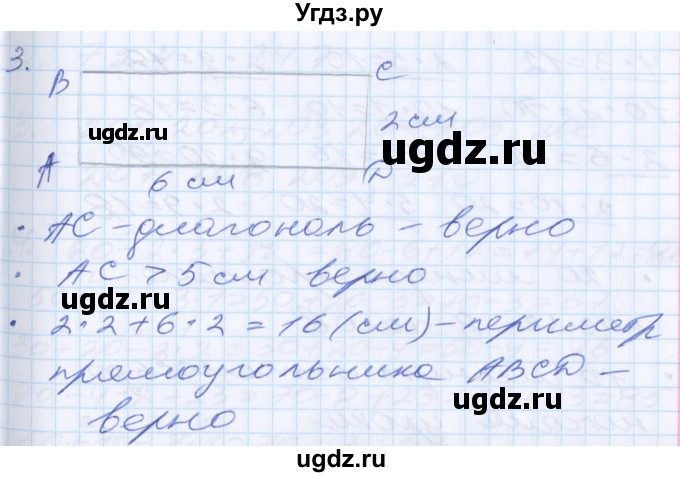 Угдз.ру
3.
B
C
ugdz.ru
ugdz.ru
2 см
A
D
6 см
· AC - диагональ - верно
· AC > 5 см верно
ugdz.ru
· 2·2+6·2=16 (см) - периметр
прямоугольника ABCD -
ugdz.ru
верно
ugdz.ru